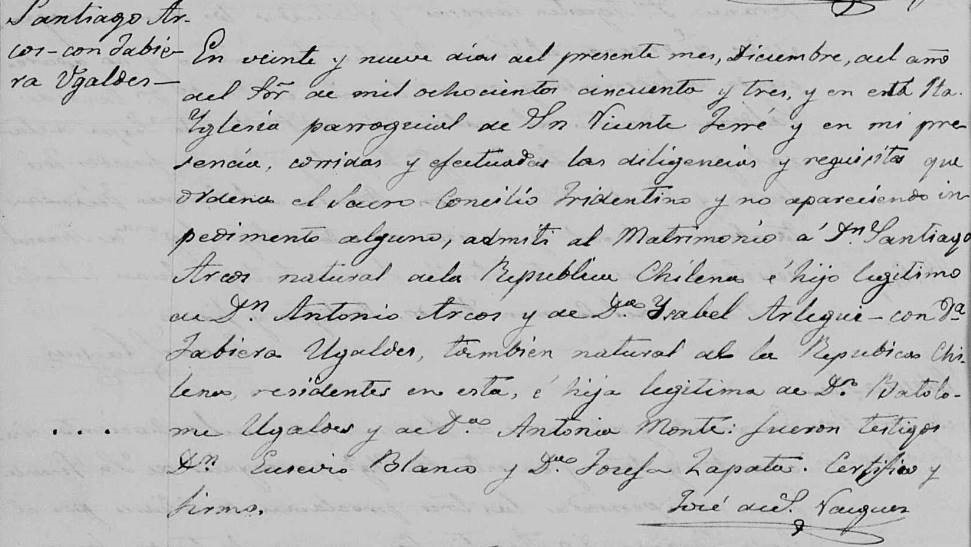 Santiago Ar-
cos - con Jabie-
ra Ugaldes -
En veinte y nueve dias del presente mes, Diciembre, del año
del Sor de mil ochocientos cincuenta y tres, y en esta Sta.
Yglesia parroquial de Sn Vicente Ferré y en mi pre
sencia, corridas y efectuadas las diligencias y requisitos que
ordena el Sacro Concilio Tridentino y no apareciendo in-
pedimento alguno, admiti al Matrimonio á Dn Santiago
Arcos natural dela Republica Chilena é hijo legitimo
de Dn Antonio Arcos y de Da. Ysabel Arlegui - con Da
Jabiera Ugaldes, tambien natural de la Republica Chi-
lena, residentes en esta, é hija legitima de Dn. Batolo-
me Ugaldes y de Da Antonia Monte: fueron testigos
Dn Eusevio Blanco y Da Josefa Zapata. Certifico y
firmo.
José de S. Vazquez